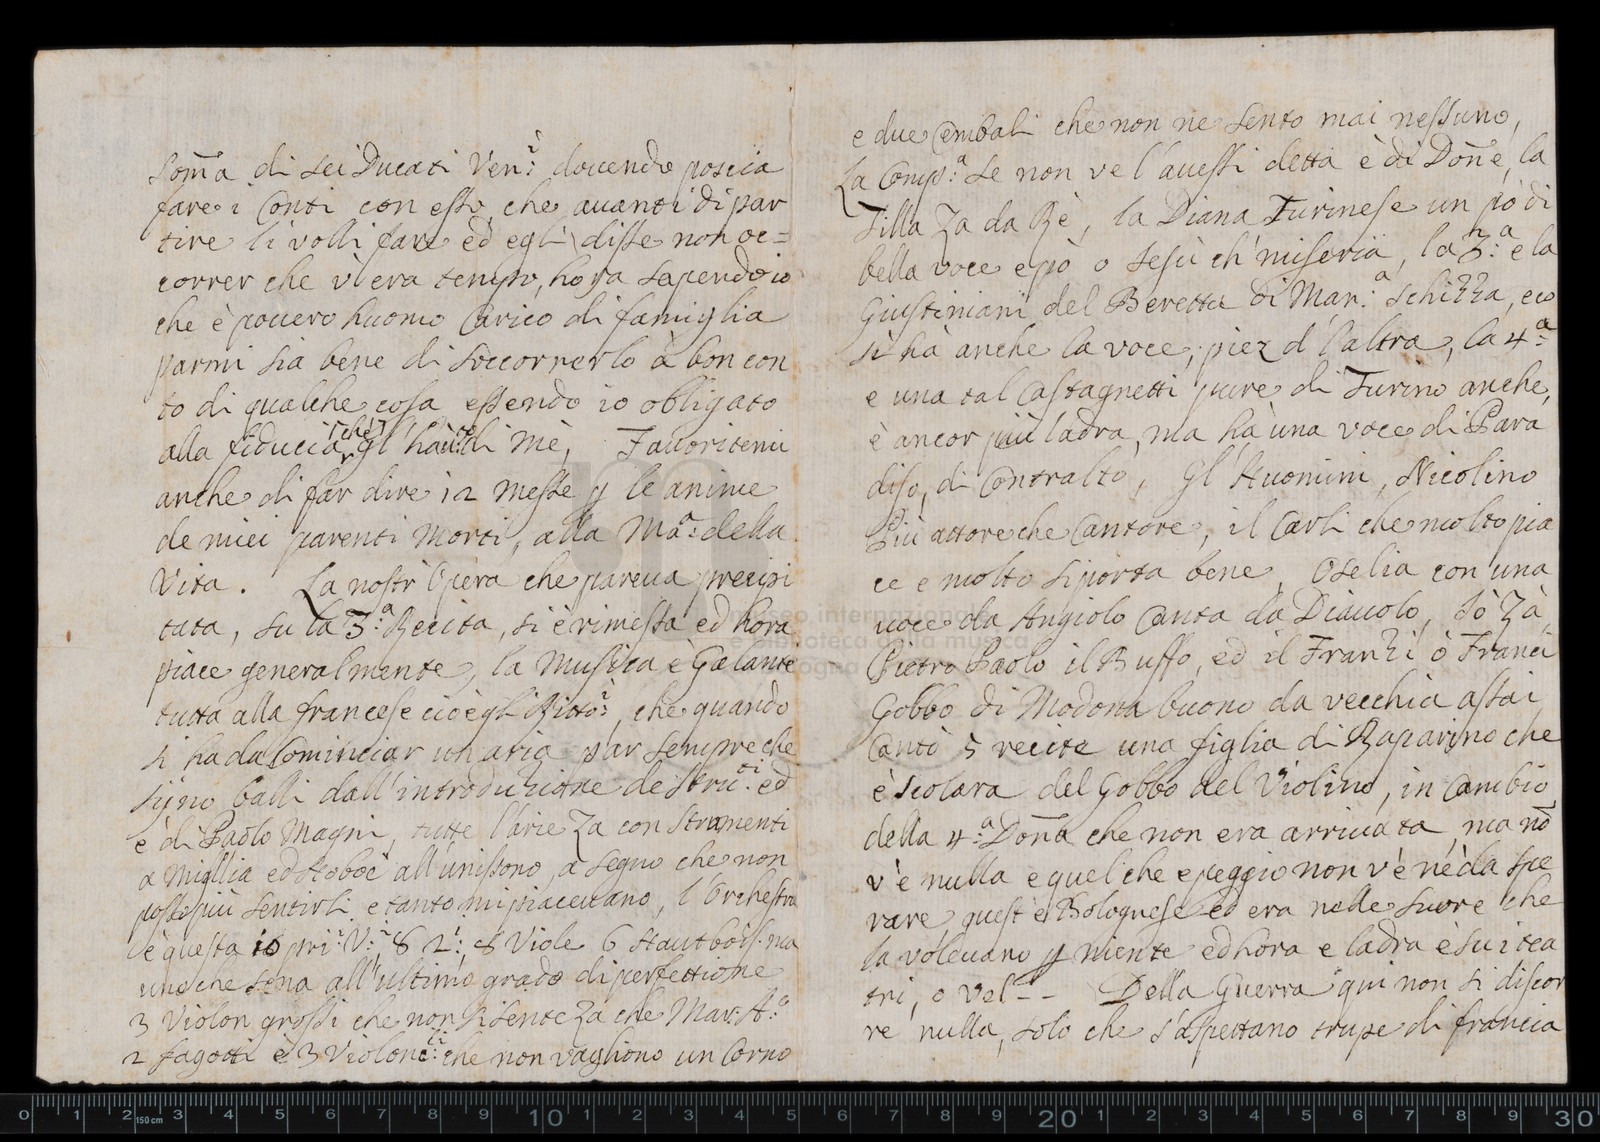 som̃a di sei Ducati Ven:ⁱ douendo poscia
fare i Conti con esso, che auanti di par
tire li volli fare ed egli disse non oc=
correr che v'era tempo, hora sapendo io
che è pouero huomo Carico di famiglia
parmi sia bene di soccorrerlo à bon con
to di qualche cosa essendo io obligato
alla fiducia che gl' hauto di mè, Fauoritemi
anche di far dire 12 messe p le anime
de miei parenti Morti, alla Mª: della
Vita. La nostr' Opera che pareua precipi
tata, su la 3:ª Recita, si è rimessa ed hora
piace generalmente, la Musica è Galante
tutta alla francese cioè gli Ritto:ⁱ, che quando
si ha da Cominciar un aria par sempre che
sijno balli dall' introduzione de Stru:ti ed
è di Paolo Magni, tutte l'arie Za con Stromenti
a Migllia ed Hoboè all' unissono, a segno che non
posso più sentirli e tanto mi piaceuano, l'Orchestra
è questa 10 pri:ⁱ V:ⁱ 8 2:ⁱ 8 Viole 6 Hautbois ma
uno che sona all' ultimo grado di perfettione
3 Violon grossi che non si sente Za che Mar: A:º
2 fagotti è 3 Violonc:li che non vagliono un Corno
e due Cembali che non ne sento mai nessuno,
La Comp:ª se non ve l'auessi detta è di Don̄e, la
Tilla Za da Rè, la Diana Turinese un pò di
bella voce e pò o Iesù ch' miseria, la 3:ª e la
Giustiniani del Beretta di Man:ª schizza, eco
sì hà anche la voce, piez d l'altra, la 4:ª
e una tal Castagnetti pure di Turino anche,
è ancor più ladra, ma hà una voce di Para
diso, di Contralto, Gl' Huomini, Nicolino
Più attore che Cantore, il Carli che molto pia
ce e molto si porta bene, Oselia con una
voce da Angiolo Canta da Diauolo, Sò Zà,
Pietro Paolo il Buffo, ed il Franzi ò Franci
Gobbo di Modona buono da vecchia assai
Cantò 5 recite una figlia di Raparino che
è scolara del Gobbo del Violino, in Cambio
della 4:ª Don̄a che non era arriuata, ma nõ
v'è nulla e quel che è peggio non v'è nè da spe
rare, quest' è Bolognese ed era nelle suore che
la voleuano p niente ed hora e ladra è su i tea
tri, o Vel - - Della Guerra qui non si discor
re nulla, solo che s'aspettano trupe di francia